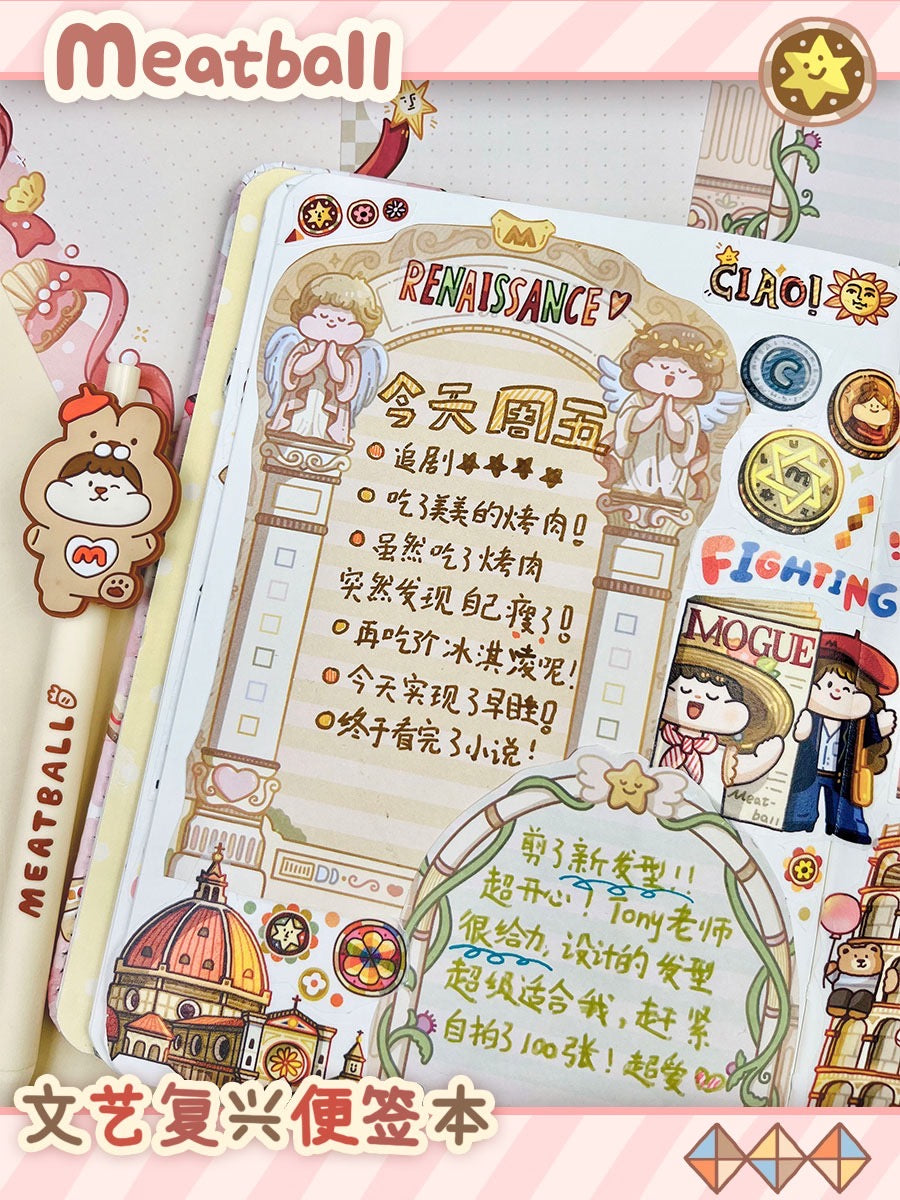 Meatball
RENAISSANCE
CIAO!
今天周五
追剧
吃了美美的烤肉!
虽然吃了烤肉
突然发现自己瘦了!
再吃个冰淇凌呢!
今天实现了早睡!
终于看完了小说!
M
C
M
FIGHTING
MOGUE
Meat-
ball
M
MEATBALL
剪了新发型!!
超开心! Tony老师
很给力,设计的发型
超级适合我,赶紧
自拍了100张!超爱
文艺复兴便签本